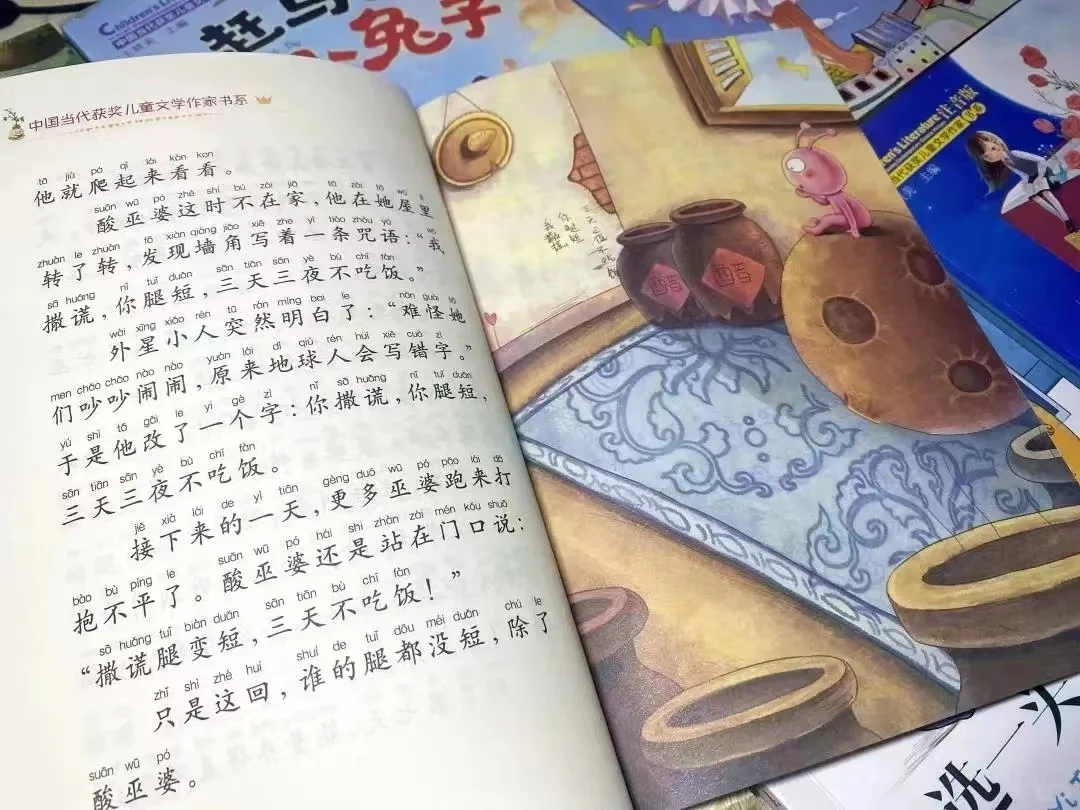 中国当代获奖儿童文学作家书系
tā jiù pá qǐ lái kàn kan
他就爬起来看看。
suān wū pó zhè shí bú zài jiā tā zài tā wū
酸巫婆这时不在家,他在她屋里
zhuàn le zhuàn fā xiàn qiáng jiǎo xiě zhe yì tiáo zhòu yǔ
转了转,发现墙角写着一条咒语:“我
sā huǎng nǐ tuǐ duǎn sān tiān sān yè bù chī fàn
撒谎,你腿短,三天三夜不吃饭。”
wài xīng xiǎo rén tū rán míng bai le nán guài tā
外星小人突然明白了:“难怪她
men chǎo chǎo nào nào yuán lái dì qiú rén huì xiě cuò zì
们吵吵闹闹,原来地球人会写错字。”
yú shì tā gǎi le yí gè zì nǐ sā huǎng nǐ tuǐ duǎn
于是他改了一个字:你撒谎,你腿短,
sān tiān sān yè bù chī fàn
三天三夜不吃饭。
jiē xià lái de yì tiān gèng duō wū pó pǎo lái dǎ
接下来的一天,更多巫婆跑来打
bào bù píng le suān wū pó hái shi zhàn zài mén kǒu shuō
抱不平了。酸巫婆还是站在门口说:
sā huǎng tuǐ biàn duǎn sān tiān bù chī fàn
“撒谎腿变短,三天不吃饭!”
zhǐ shì zhè huí shuí de tuǐ dōu méi duǎn chú le
只是这回,谁的腿都没短,除了
suān wū pó
酸巫婆。
你腿短
醋
醋
Children's Literature
赶
小兔子
注音版
主编
选一